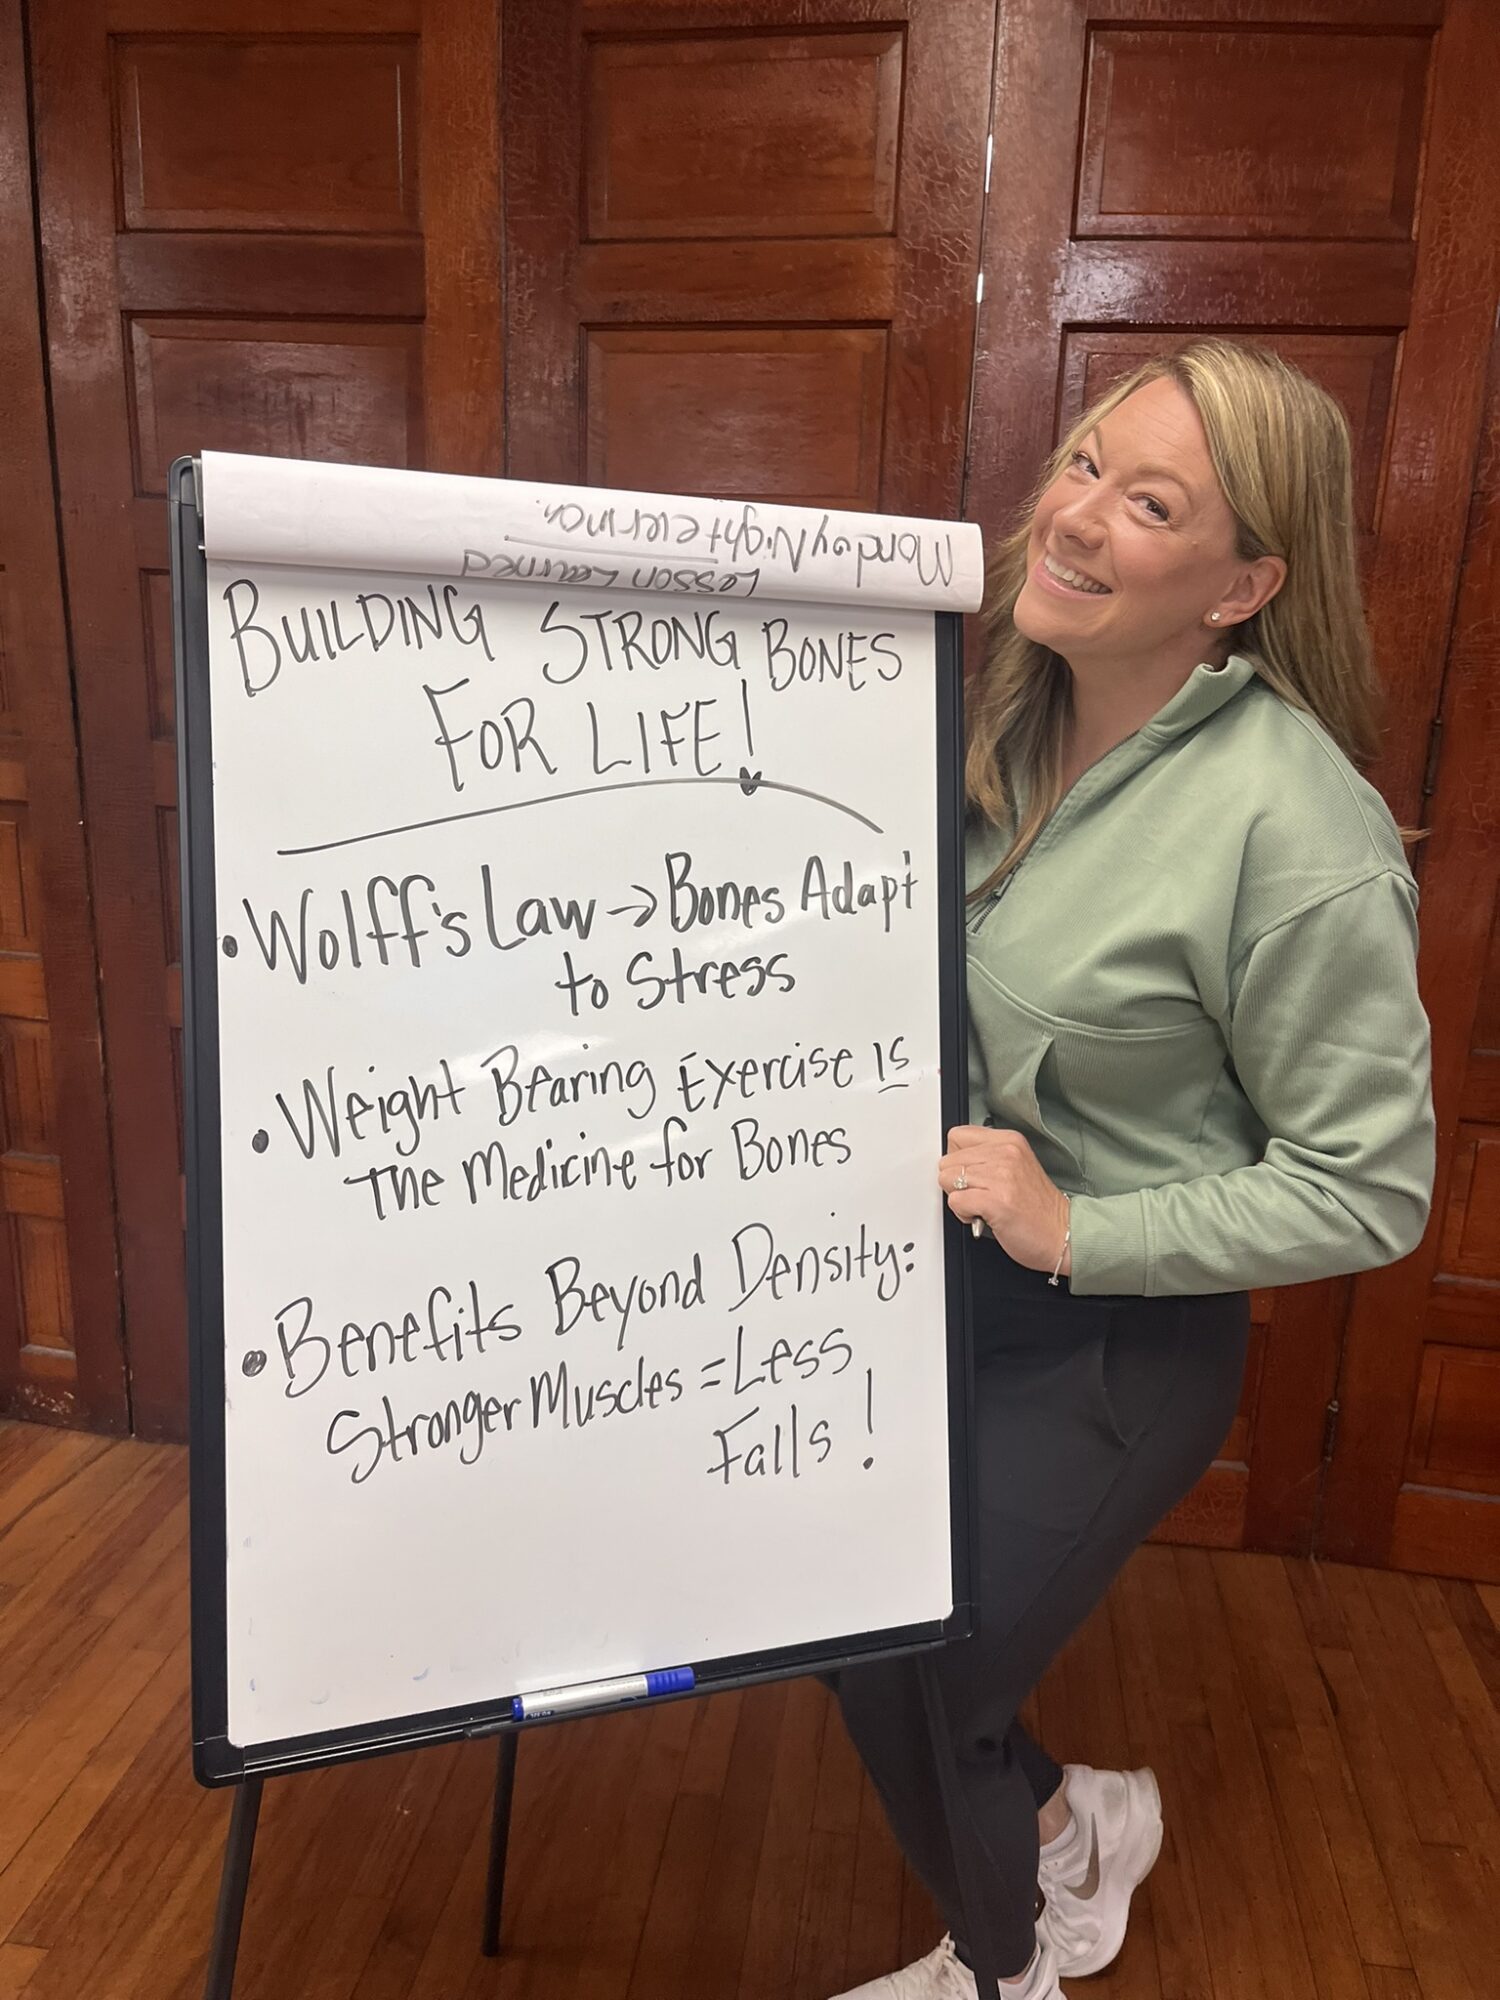 Monday Night elev8ion
Lesson Learned
BUILDING STRONG BONES
FOR LIFE!
• Wolff's Law → Bones Adapt
to Stress
• Weight Bearing Exercise IS
The Medicine for Bones
• Benefits Beyond Density:
Stronger Muscles = Less
Falls!